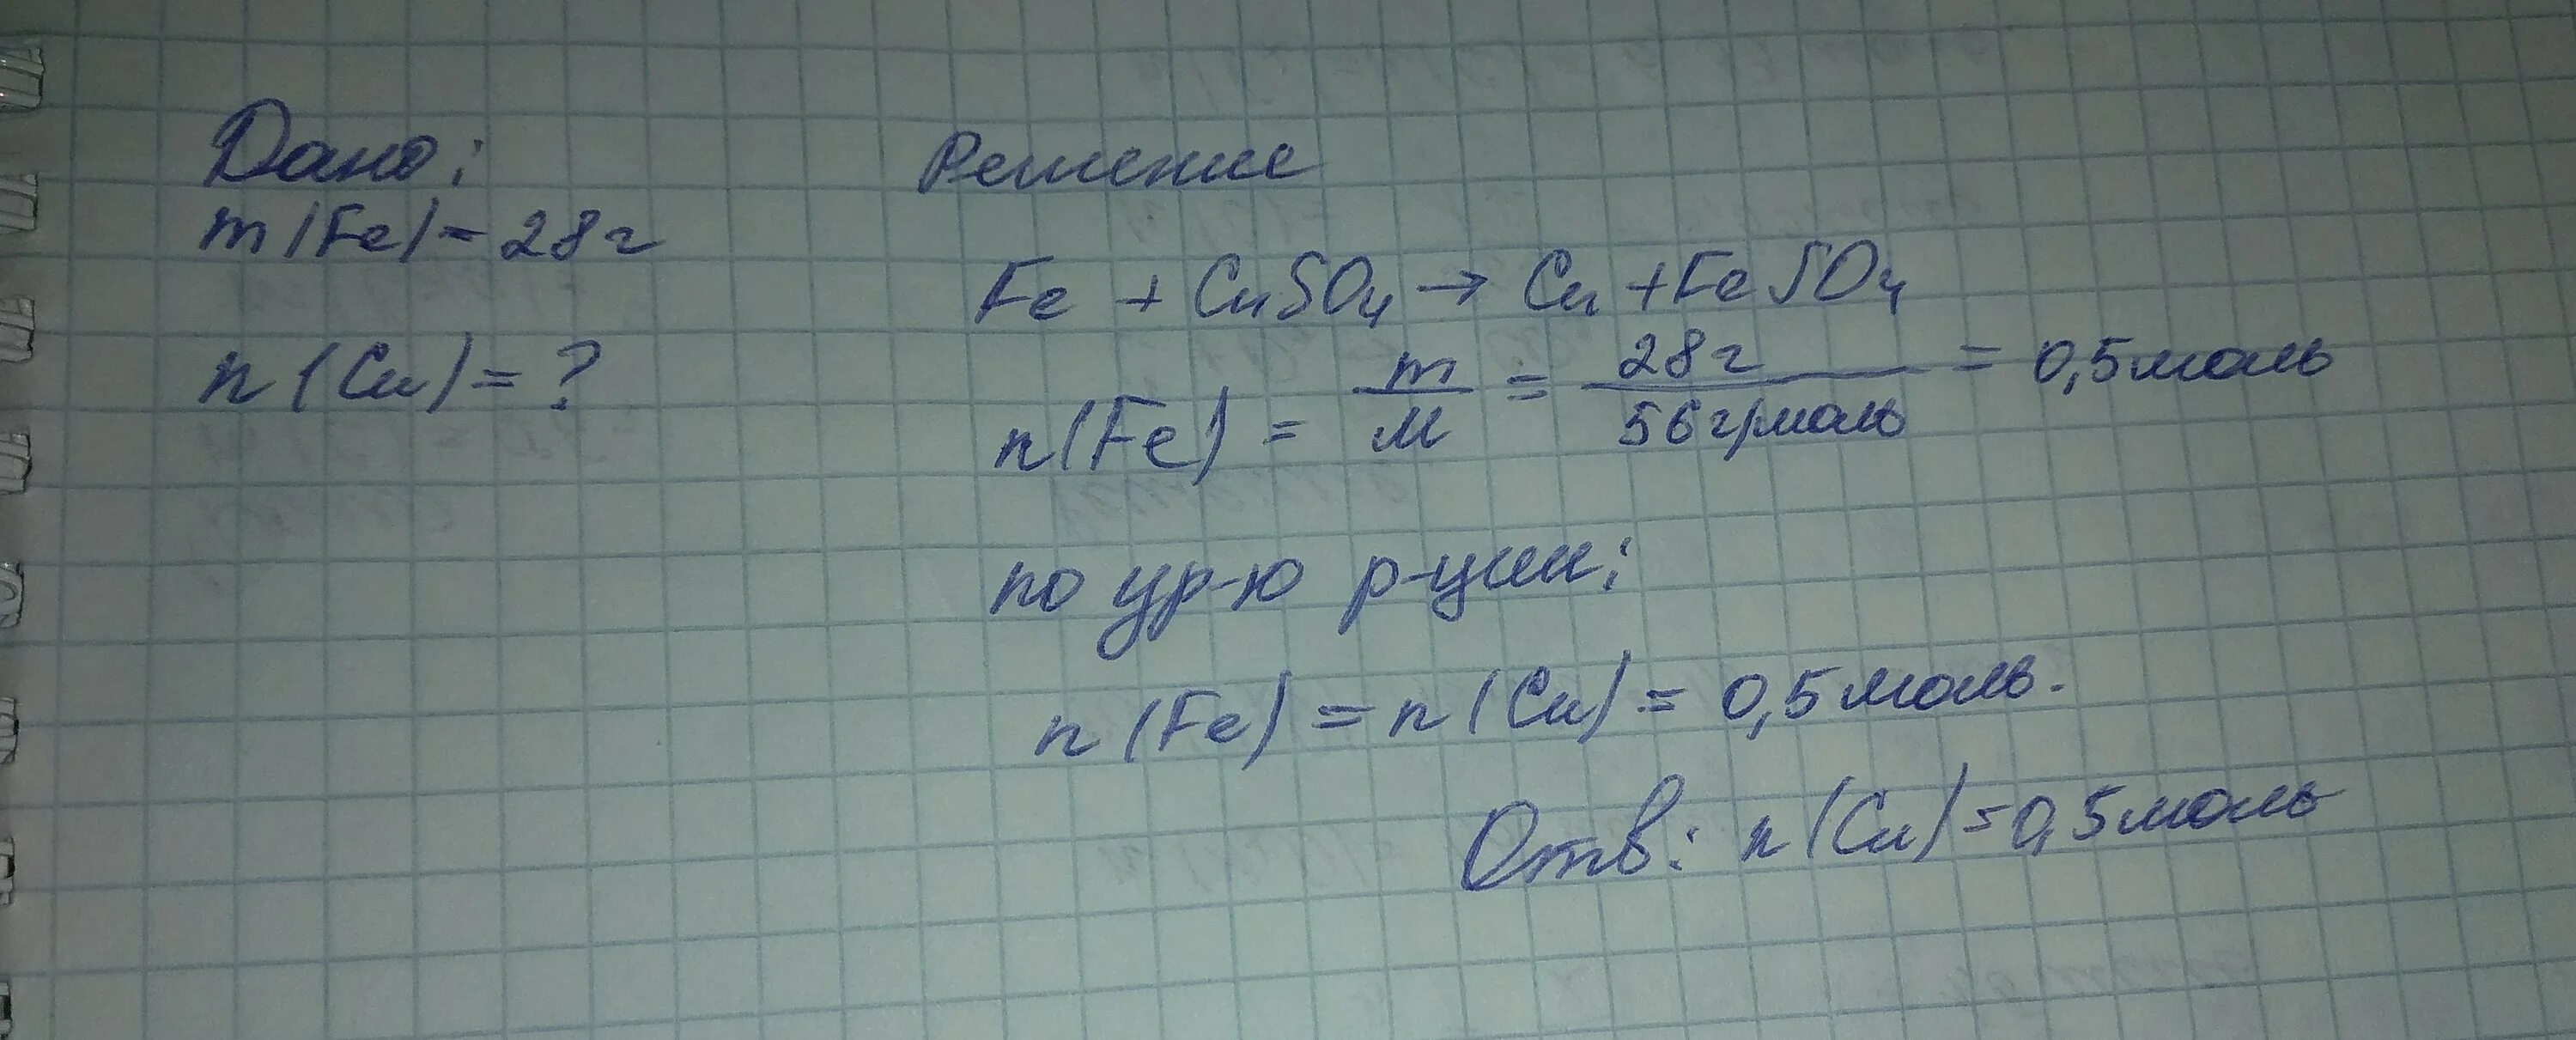 Дано:
m(Fe)=28г
n(Cu)=?
Решение
Fe + CuSO₄ → Cu + FeSO₄
n(Fe) = m/M = 28г/56г/моль = 0,5моль
по ур-ю р-ции:
n(Fe) = n(Cu) = 0,5моль.
Отв: n(Cu)=0,5моль